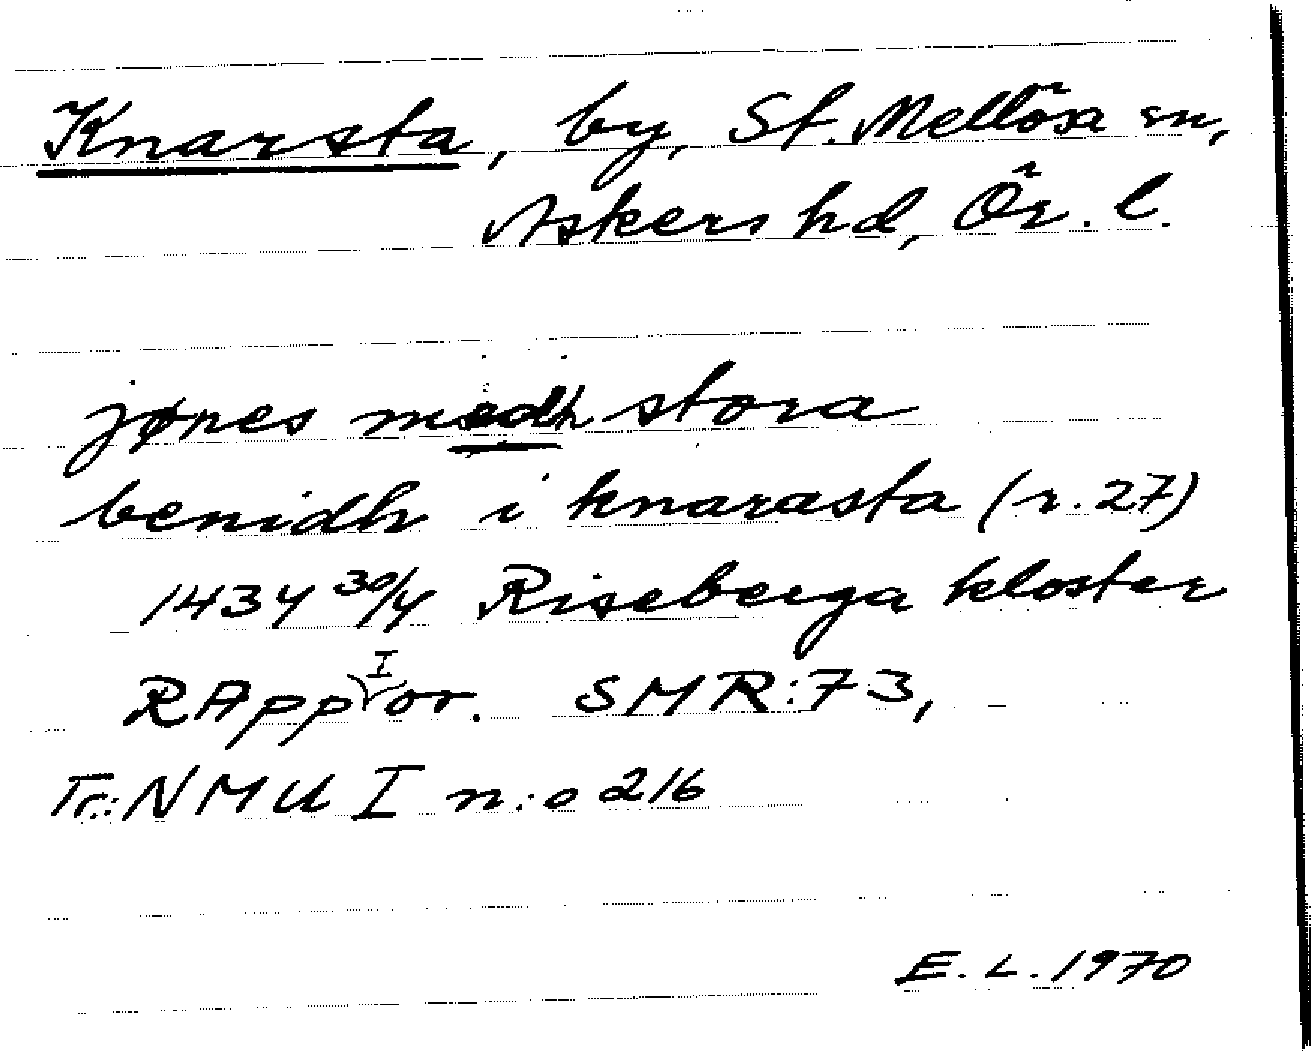 Knarsta, by, St. Mellösa sn,
Askers hd, Ör. l.
jønes medh stora
benidh i knarasta (r. 27)
1434 30/4 Riseberga kloster
RApp I or. SMR:73,
Tr.: NMU I n:o 216
E. L. 1970